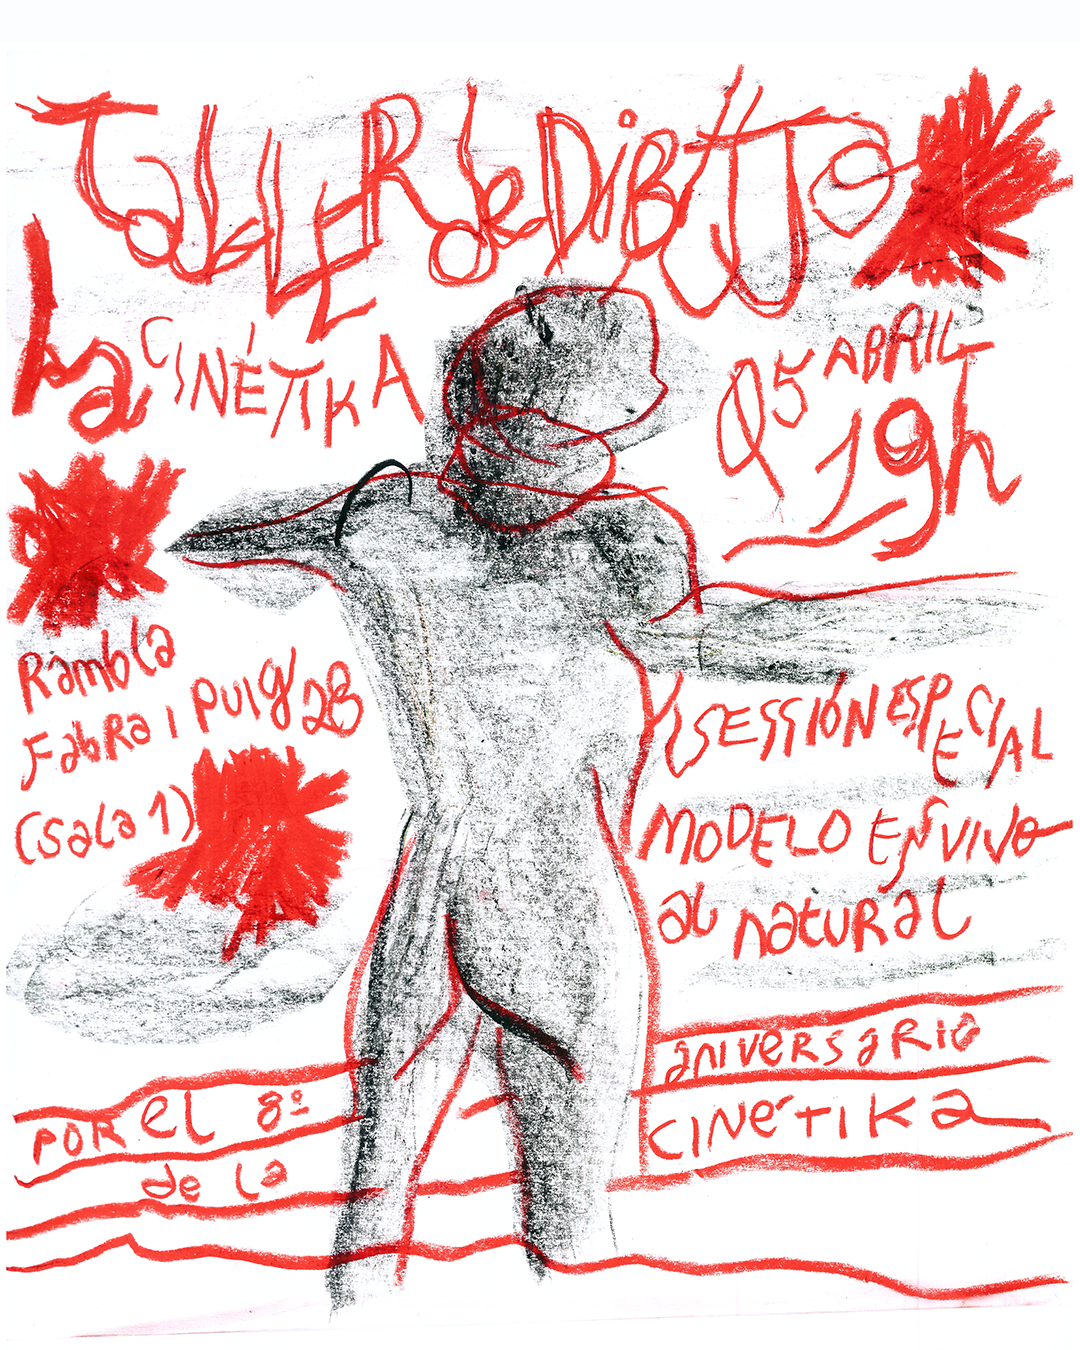 TalLER de DiBUJO
La CINÉTIKA
05 ABRIL
19h
Rambla
Fabra i Puig 28
(sala 1)
SESSIÓN ESPECIAL
MODELO EN VIVO
al natural
POR el 8º aniversario
de la CINÉTIKA